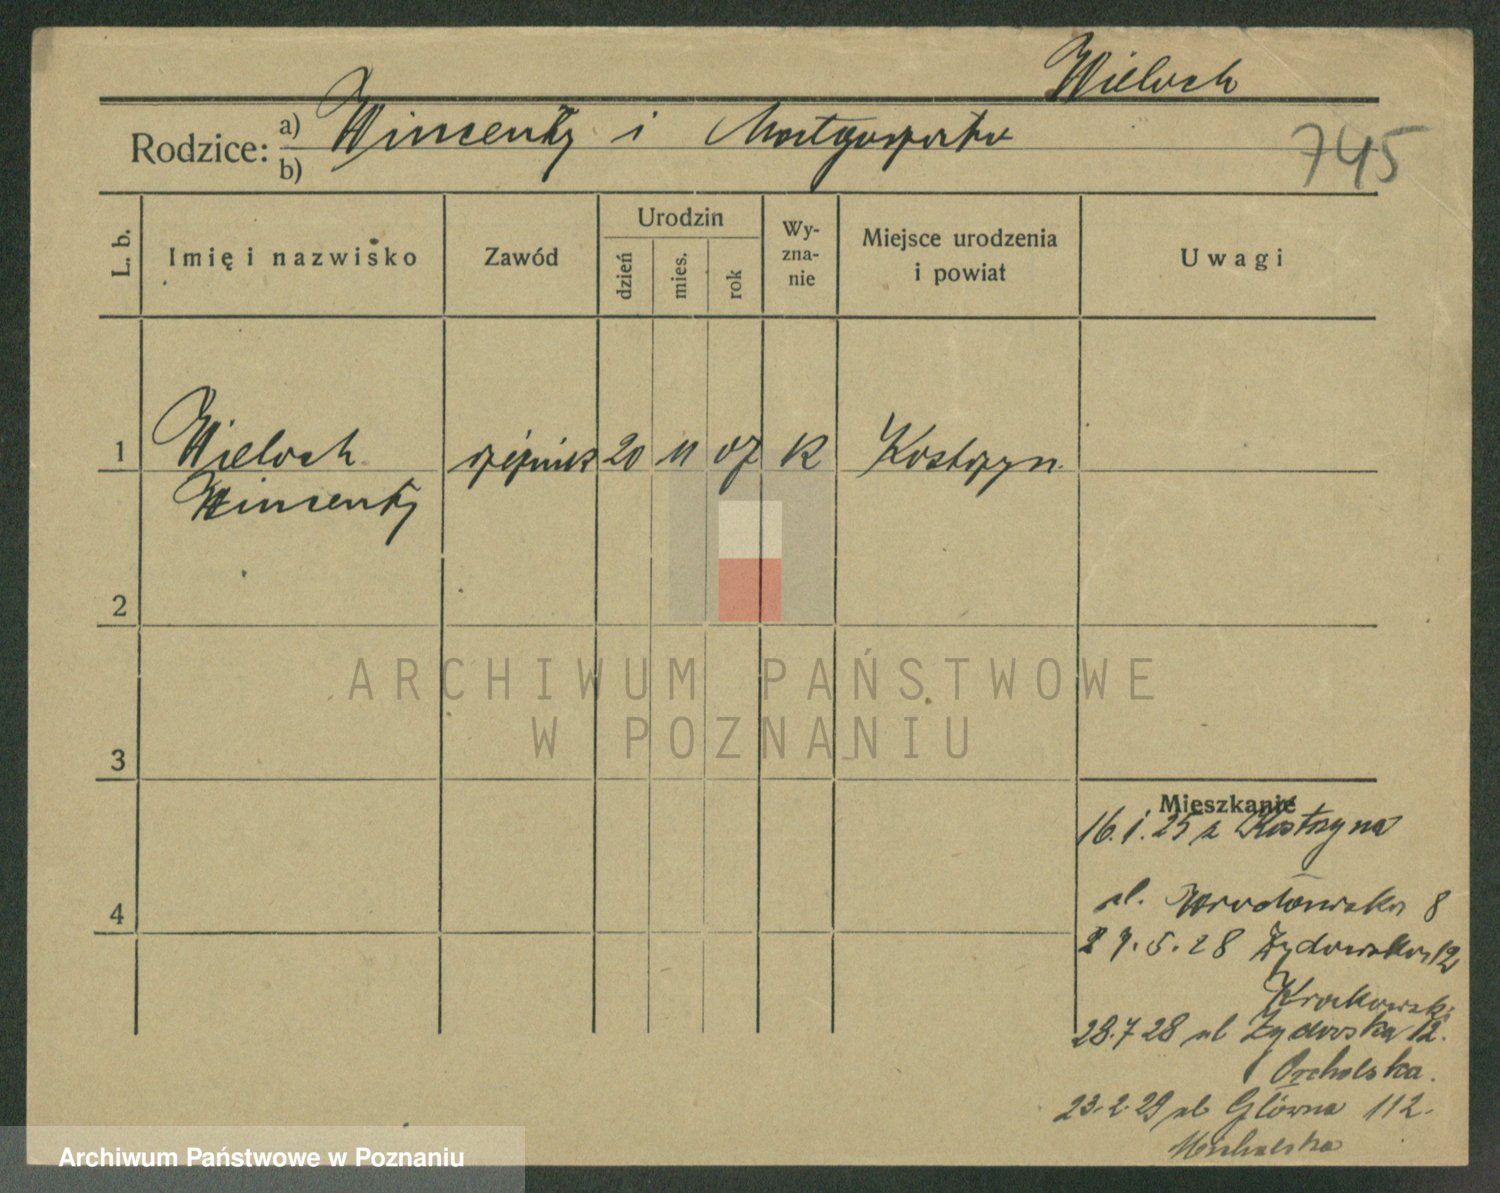 Wieloch
Rodzice: a) Wincenty i Małgorzata
b)
745
L. b.
Imię i nazwisko
Zawód
Urodzin
dzień
mies.
rok
Wy-
zna-
nie
Miejsce urodzenia
i powiat
Uwagi
1
Wieloch
Wincenty
20
11
07
K
Kostrzyn
2
ARCHIWUM PAŃSTWOWE
W POZNANIU
3
4
Mieszkanie
16.1.25 z Kostrzyna
ul. Wrocławska 8
27.5.28 Żydowska 12
Krakowski
28.7 28 ul Żydowska 12.
23.2.29 ul Główna 112.
Michalska
Archiwum Państwowe w Poznaniu